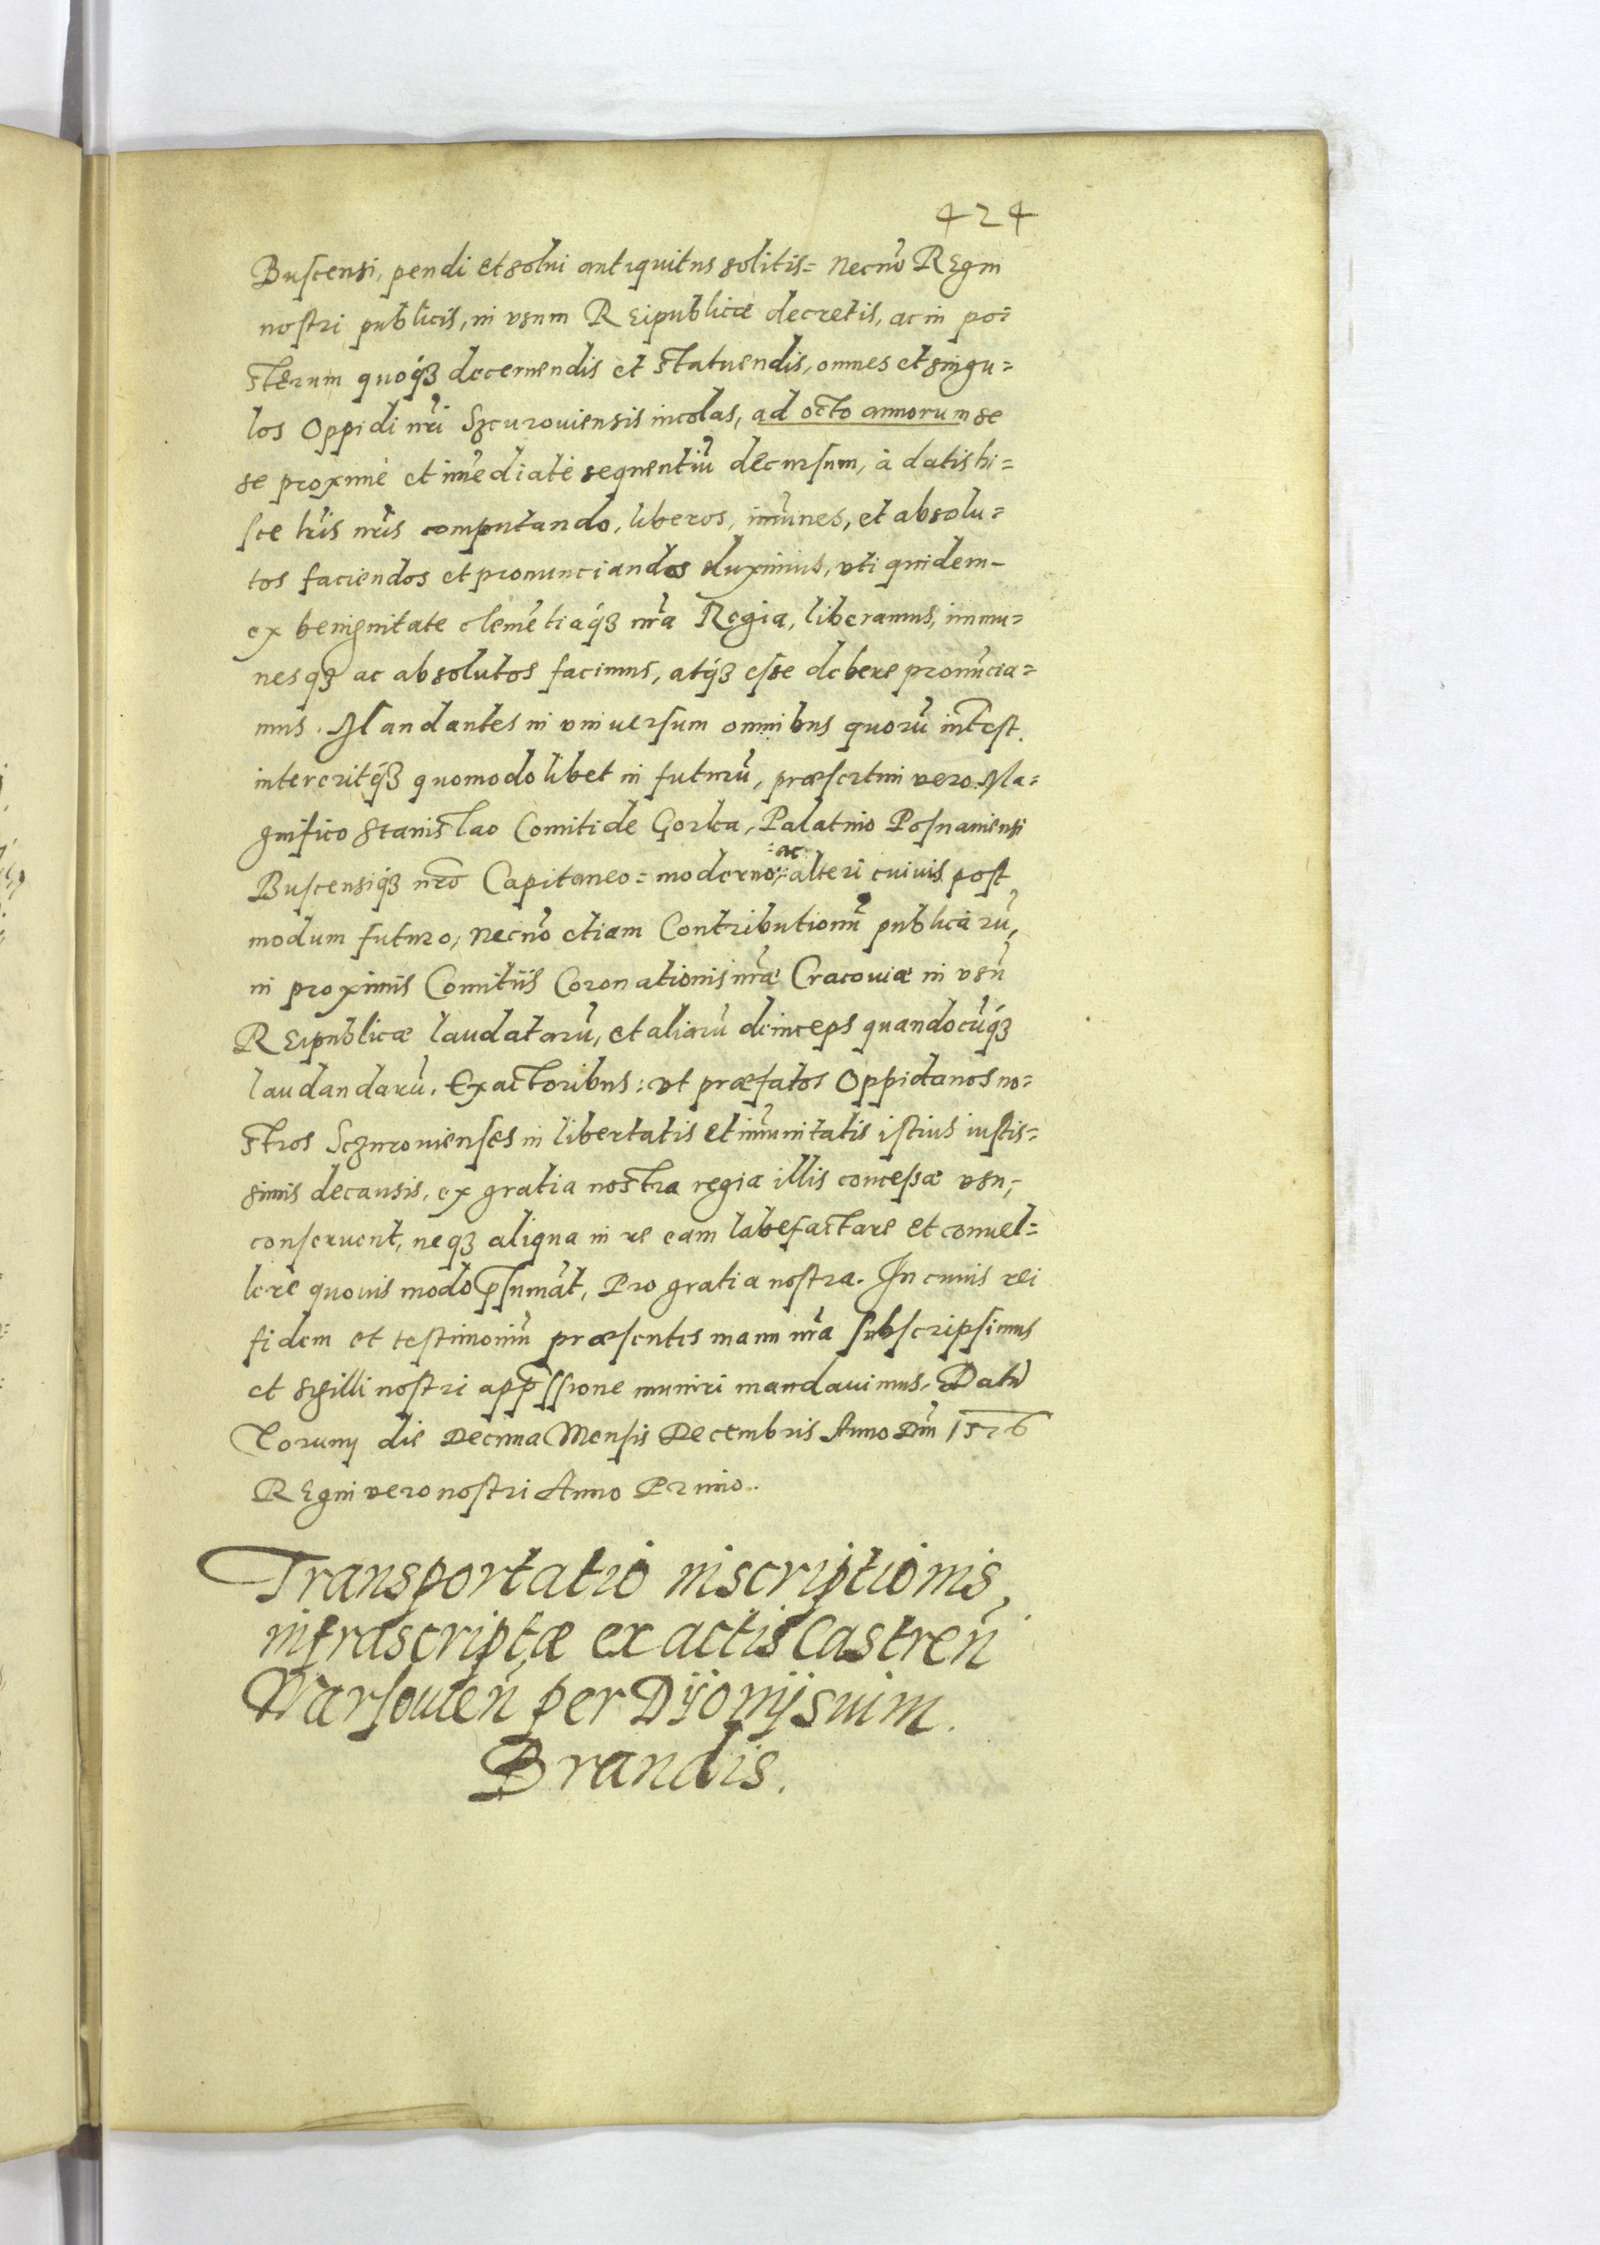 424
Buscensi, pendi et solui antiquitus solitis= necnō Regni
nostri publicis, in vsum Reipublicæ decretis, ac in po=
sterum quoq́ꝫ decernendis et statuendis, omnes et singu=
los Oppidi nr̃i Szcurouiensis incolas, ad octo annorum se
se proximè et im̃ediatè sequentiũ decursum, à datis hi=
sce lr̃is nr̃is computando, liberos, im̃unes, et absolu=
tos faciendos et pronunciandos duximus, vti quidem-
ex benignitate clemẽtiaq́ꝫ nr̃a Regia, liberamus, immu=
nesqꝫ ac absolutos facimus, atq́ꝫ esse debere pronũcia=
mus. Mandantes in vniuersum omnibus quorũ int̃est.
intereritq́ꝫ quomodolibet in futurũ, præsertim vero Ma=
gnifico Stanislao Comiti de Gorka, Palatino Posnaniensi
Buscensiq́ꝫ nr̃o Capitaneo= moderno, :ac: alteri cuiuis post
modum futuro, necnõ etiam Contributionũ publicarũ,
in proximis Comitiis Coronationis nr̃æ Cracouiæ in vsũ
Reipublicæ laudatarũ, et aliarũ deinceps quandocũq́ꝫ
laudandarũ. Exactoribus: vt præfatos Oppidanos no=
stros Sczurouienses in libertatis et im̃unitatis istius iustis=
simis de causis, ex gratia nostra regia illis concessæ vsu,
conseruent, neqꝫ aliqua in re eam labefactare et conuel=
lere quouis modo p̃sumãt, Pro gratia nostra. In cuius rei
fidem et testimoniũ præsentes manu nr̃a subscripsimus
et sigilli nostri app̃ssione muniri mandauimus. Datũ
Toruny die Decima Mensis Decembris Anno Dnĩ 1576
Regni vero nostri Anno Primo..
Transportatio inscriptionis,
infrascriptæ ex actis Castreñ
Warsouieñ per Dÿonÿsuim.
Brandis.